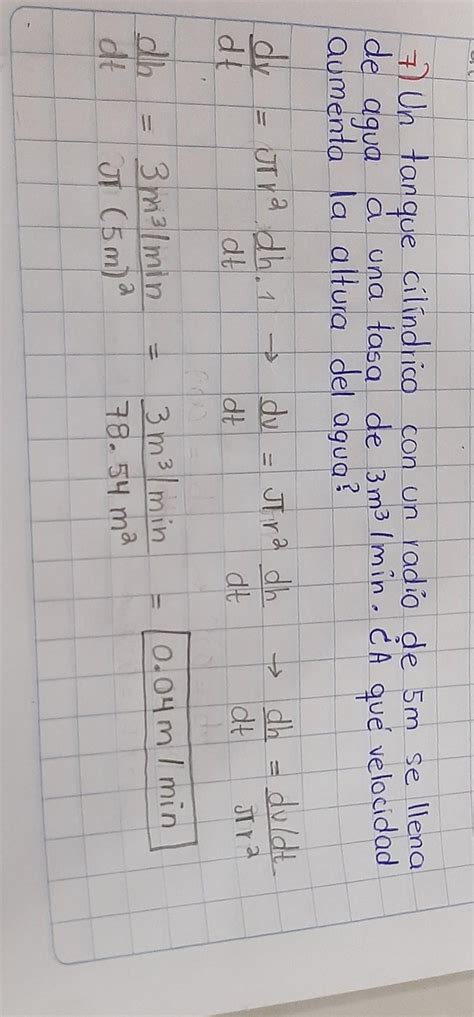 7) Un tanque cilíndrico con un radio de 5m se llena
de agua a una tasa de 3m³/min. ¿A qué velocidad
aumenta la altura del agua?
dv/dt = πr² dh/dt · 1 → dv/dt = πr² dh/dt → dh/dt = dv/dt / πr²
dh/dt = 3m³/min / π(5m)² = 3m³/min / 78.54m² = 0.04m/min